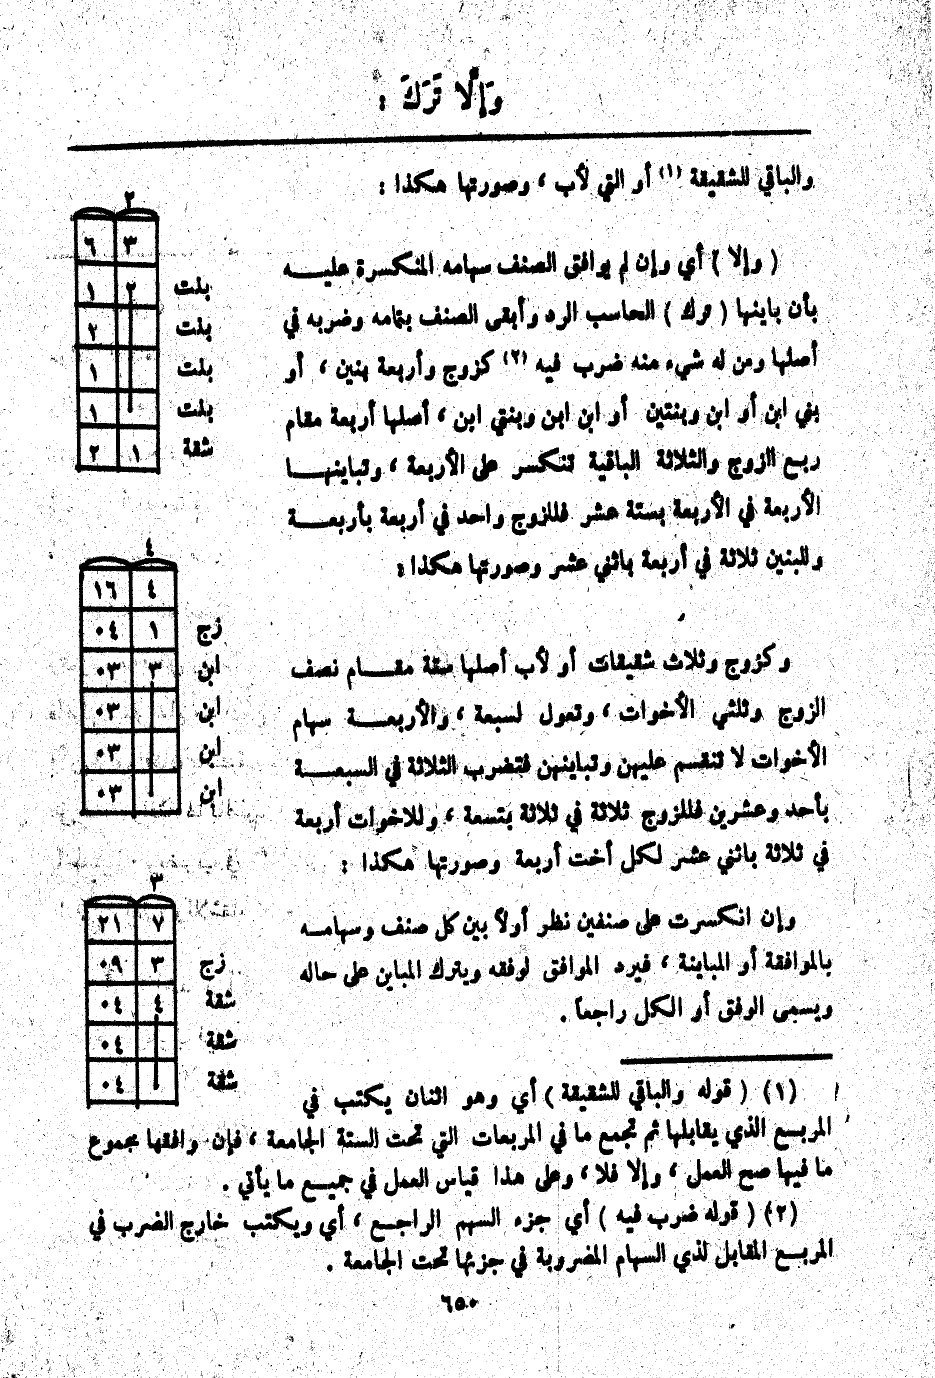 وَإِلَّا تَرَكَ :
والباقي للشقيقة (١) أو التي لأب ، وصورتها هكذا :
٢
٦ ٣
بنت ٢ ١
بنت ٢
بنت ١
بنت ١
شقة ١ ٢
( وإلا ) أي وإن لم يوافق الصنف سهامه المنكسرة عليـــه
بأن باينها ( ترك ) الحاسب الرد وأبقى الصنف بتمامه وضربه في
أصلها ومن له شيء منه ضرب فيه (٢) كزوج وأربعة بنين ، أو
بني ابن أو ابن وبنتين أو ابن ابن وبنتي ابن ، أصلها أربعة مقام
ربع الزوج والثلاثة الباقية تنكسر على الأربعة ، وتباينهــا
الأربعة في الأربعة بستة عشر فللزوج واحد في أربعة بأربعـــة
وللبنين ثلاثة في أربعة باثني عشر وصورتها هكذا :
٤
١٦ ٤
زج ١ ٠٤
ابن ٣ ٠٣
ابن ٠٣
ابن ٠٣
ابن ٠٣
وكزوج وثلاث شقيقات أو لأب أصلها ستة مقـــام نصف
الزوج وثلثي الأخوات ، وتعول لسبعة ، والأربعـــة سهام
الأخوات لا تنقسم عليهن وتباينهن فتضرب الثلاثة في السبعـــة
بأحد وعشرين فللزوج ثلاثة في ثلاثة بتسعة ، وللاخوات أربعة
في ثلاثة باثني عشر لكل أخت أربعة وصورتها هكذا :
٣
٢١ ٧
زج ٣ ٠٩
شقة ٤ ٠٤
شقة ٠٤
شقة ٠٤
وإن انكسرت على صنفين نظر أولاً بين كل صنف وسهامــه
بالموافقة أو المباينة ، فيرد الموافق لوفقه ويترك المباين على حاله
ويسمى الوفق أو الكل راجعاً .
(١) ( قوله والباقي للشقيقة ) أي وهو اثنان يكتب في
المربع الذي يقابلها ثم تجمع ما في المربعات التي تحت الستة الجامعة ، فإن وافقها مجموع
ما فيها صح العمل ، وإلا فلا ، وعلى هذا قياس العمل في جميع ما يأتي .
(٢) ( قوله ضرب فيه ) أي جزء السهم الراجع ، أي ويكتب خارج الضرب في
المربع المقابل لذي السهام المضروبة في جزئها تحت الجامعة .
٦٥٠